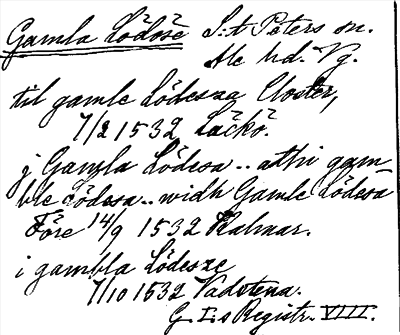 Gamla Lödöse S:t Peters sn.
Ale hd. Vg.
til gamle Lödesza Closter,
7/2 1532 Läckö.
j Gamla Lödesa.. athi gam-
ble Lödesa.. widh Gamle Lödesa
Före 14/9 1532 Kalmar.
i gambla Lödesze
7/10 1532 Vadstena.
G. I:s Registr. VIII.